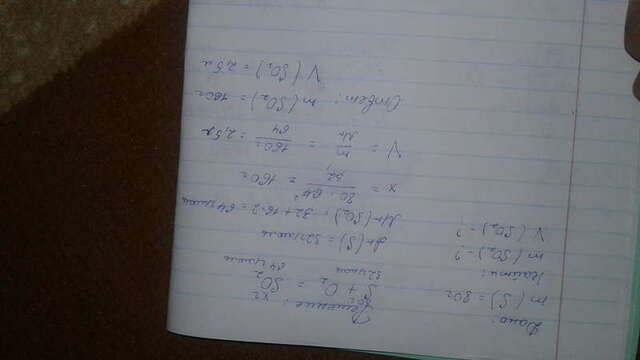 Дано:
m(S) = 80г
Найти:
m(SO₂) - ?
V(SO₂) - ?
Решение:
80г xг
S + O₂ = SO₂
32г/моль 64г/моль
M(S) = 32г/моль
M(SO₂) = 32 + 16·2 = 64г/моль
x = 80·64 / 32 = 160г
V = m / M = 160г / 64 = 2,5л
Ответ: m(SO₂) = 160г
V(SO₂) = 2,5л